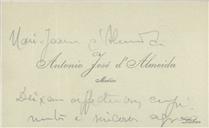 Maria Joana d'Almeida
e
Antonio José d'Almeida
Medico
Deixam affectuosos cumpri
mentos e
Lisboa